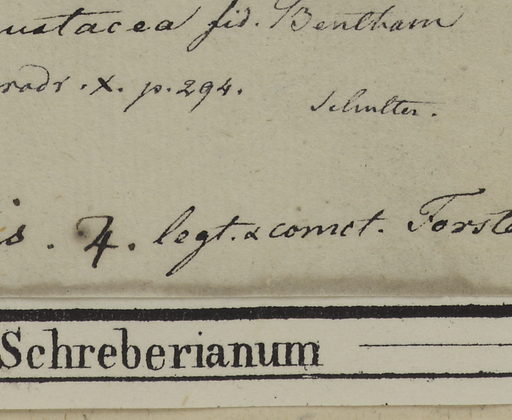 ustacea fid. Bentham
rodr. X. p. 294.
Schulter.
is. 4. legt. & comct. Forste
Schreberianum